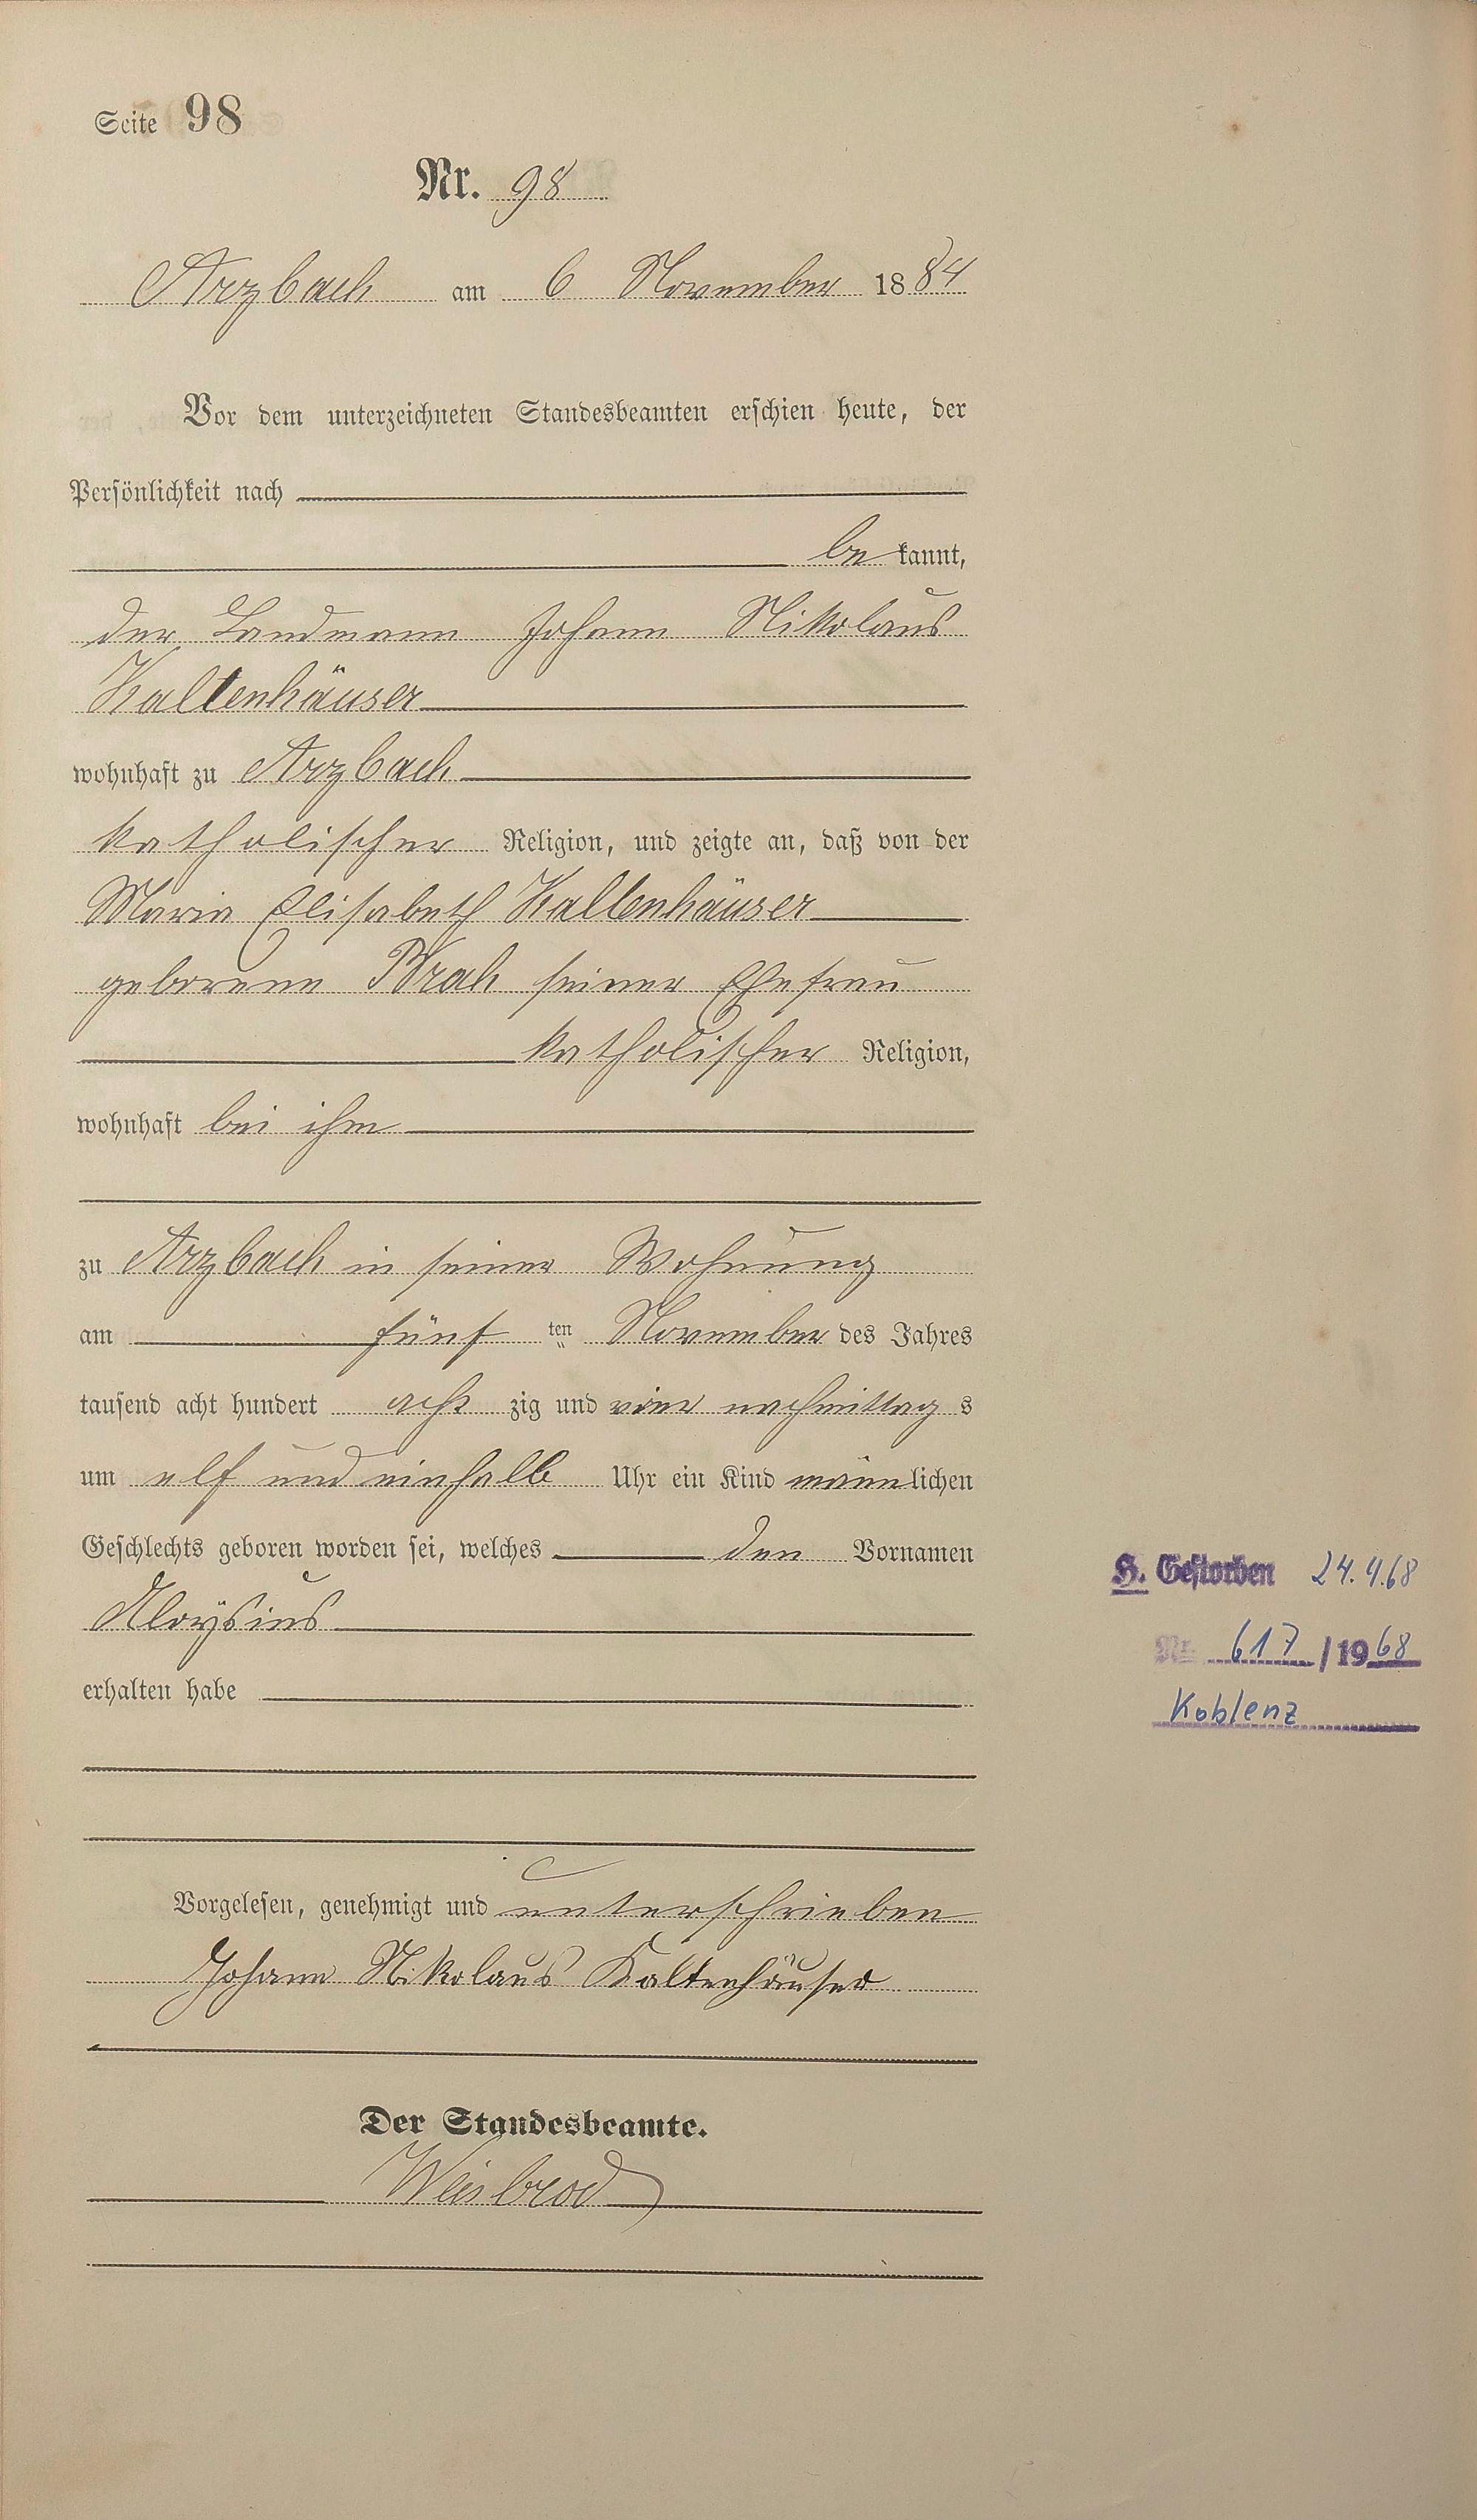 Seite 98
Nr. 98
Arzbach am 6 November 1884
Vor dem unterzeichneten Standesbeamten erschien heute, der
Persönlichkeit nach
be kannt,
der Landmann Johann Nikolaus
Kaltenhäuser
wohnhaft zu Arzbach
katholischer Religion, und zeigte an, daß von der
Maria Elisabeth Kaltenhäuser
geborene Brah seiner Ehefrau
katholischer Religion,
wohnhaft bei ihm
zu Arzbach in seiner Wohnung
am fünf ten November des Jahres
tausend acht hundert acht zig und vier nachmittag s
um elf und einhalb Uhr ein Kind männlichen
Geschlechts geboren worden sei, welches den Vornamen
Aloysius
erhalten habe
H. Gestorben 24.4.68
Nr. 617 / 1968
Koblenz
Vorgelesen, genehmigt und unterschrieben
Johann Nikolaus Kaltenhäuser
Der Standesbeamte.
Weisbrod